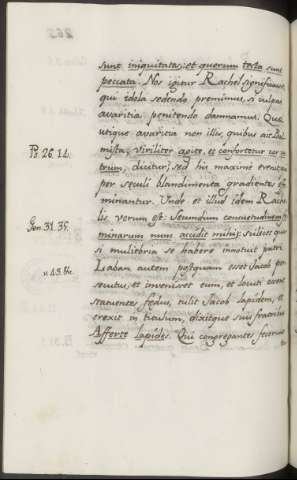 sunt iniquitates; et quorum tecta sunt
peccata. Nos igitur Rachel significavit,
qui idola sedendo premimus, si culpas
avaritiæ penitendo damnamus. Quæ
utique avaritia non illis, quibus ait Psal-
Ps. 26. 14. mista, viriliter agite, et confortetur cor ves-
trum, dicitur; sed his maxime evenit, qui
per seculi blandimenta gradientes effe-
minantur. Unde et illud idem Rache-
Gen. 31. 35. lis verum est: Secundum consuetudinem fe-
minarum nunc accidit mihi; scilicet quæ
si muliebria se habere innotuit patri.
v. 43. &c. Laban autem postquam esset Jacob per-
secutus, et invenisset eum, et locuti essent
statuentes fedus, tulit Jacob lapidem, et
erexit in titulum, dixitque suis fratribus
Afferte lapides. Qui congregantes fecerunt